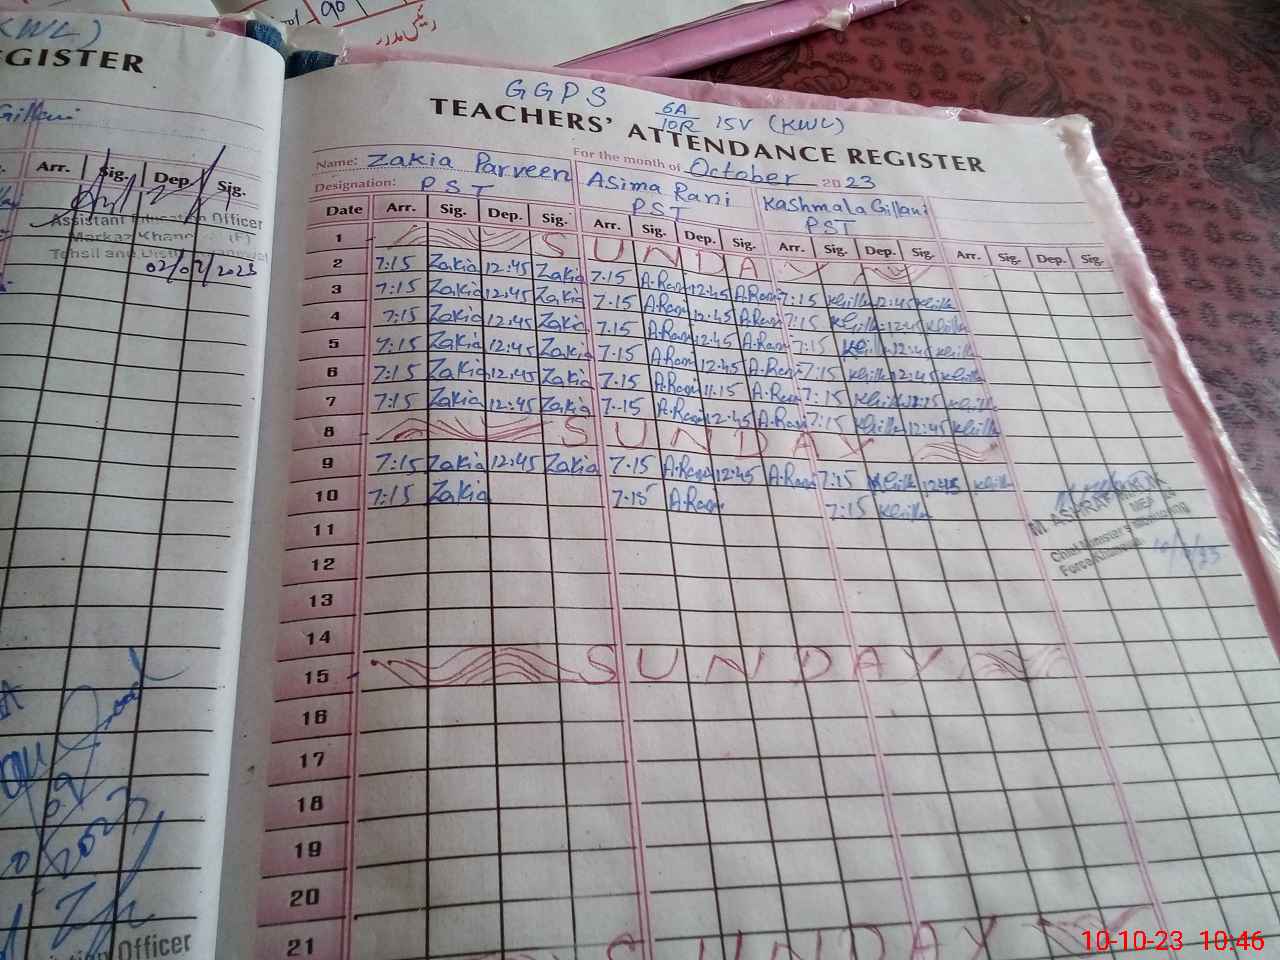 90
رئیس مدرسہ
(KWL)
REGISTER
Gillani
Arr. Sig. Dep. Sig.
Assistant Education Officer
Markaz Khanewal (F)
Tehsil and District Khanewal
02/09/2023
Education Officer
GGPS 6A/10R 15V (KWL)
TEACHERS' ATTENDANCE REGISTER
For the month of October 2023
Name: Zakia Parveen Asima Rani Kashmala Gillani
Designation: PST PST PST
Date Arr. Sig. Dep. Sig. Arr. Sig. Dep. Sig. Arr. Sig. Dep. Sig. Arr. Sig. Dep. Sig.
1 SUNDAY
2 7:15 Zakia 12:45 Zakia 7:15 A.Rani 12:45 A.Rani 7:15 12:45
3 7:15 Zakia 12:45 Zakia 7:15 A.Rani 12:45 A.Rani 7:15 12:45
4 7:15 Zakia 12:45 Zakia 7:15 A.Rani 12:45 A.Rani 7:15 12:45
5 7:15 Zakia 12:45 Zakia 7:15 A.Rani 12:45 A.Rani 7:15 12:45
6 7:15 Zakia 12:45 Zakia 7:15 A.Rani 11.15 A.Rani 7:15
7 7:15 Zakia 12:45 Zakia 7:15 A.Rani 12:45 A.Rani 7:15 12:45
8 SUNDAY
9 7:15 Zakia 12:45 Zakia 7:15 A.Rani 12:45 A.Rani 7:15 12:45
10 7:15 Zakia 7:15 A.Rani 7:15
11
12
13
14
15 SUNDAY
16
17
18
19
20
21
SUNDAY
M. ASHRAF
MEA
Chief Minister's Monitoring
Force Khanewal
10-10-23 10:46